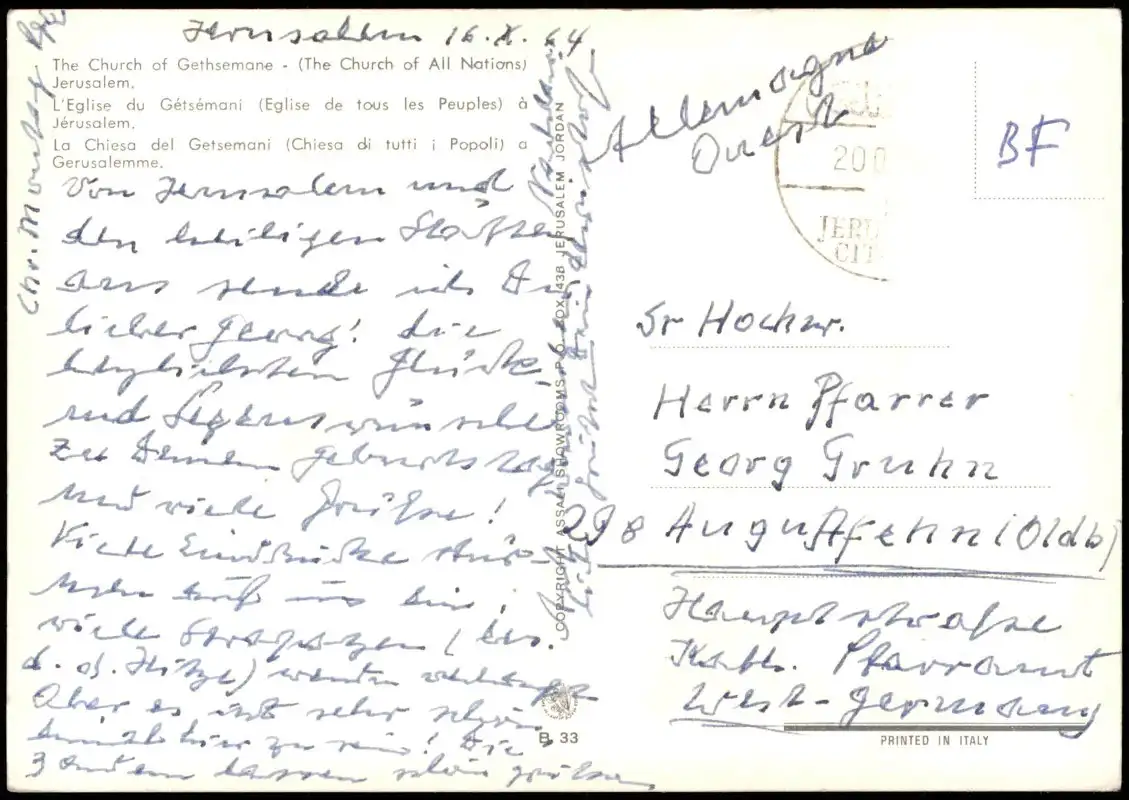 Jerusalem 16.X.64
The Church of Gethsemane - (The Church of All Nations)
Jerusalem.
L'Eglise du Gétsémani (Eglise de tous les Peuples) à
Jérusalem.
La Chiesa del Getsemani (Chiesa di tutti i Popoli) a
Gerusalemme.
Von Jerusalem und
den heiligen Stätten
aus sende ich Dir
lieber Georg! die
herzlichsten Glück-
und Segenswünsche
zu Deinem Geburtstag
und viele Grüße!
Viele Eindrücke stür-
men auf uns ein;
viele Strapazen (bes.
d. d. Hitze) werden verlangt
Aber es ist sehr schön
einmal hier zu sein! Die
3 andern lassen schön grüßen
Dein
Chr.
COPYRIGHT ASSALI SHOWROOMS P.O. BOX 1438 JERUSALEM JORDAN
B. 33
Allemagne
Ouest
BF
200
JERU
CIT
Sr Hochw.
Herrn Pfarrer
Georg Gruhn
298 Augustfehn (Oldb)
Hauptstraße
Kath. Pfarramt
West-Germany
PRINTED IN ITALY